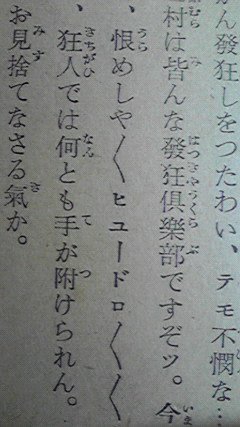 ん發狂しをつたわい、テモ不憫な…
村は皆んな發狂倶樂部ですぞッ。今
、恨めしや〱ヒユードロ〱〱
、狂人では何とも手が附けられん。
お見捨てなさる氣か。